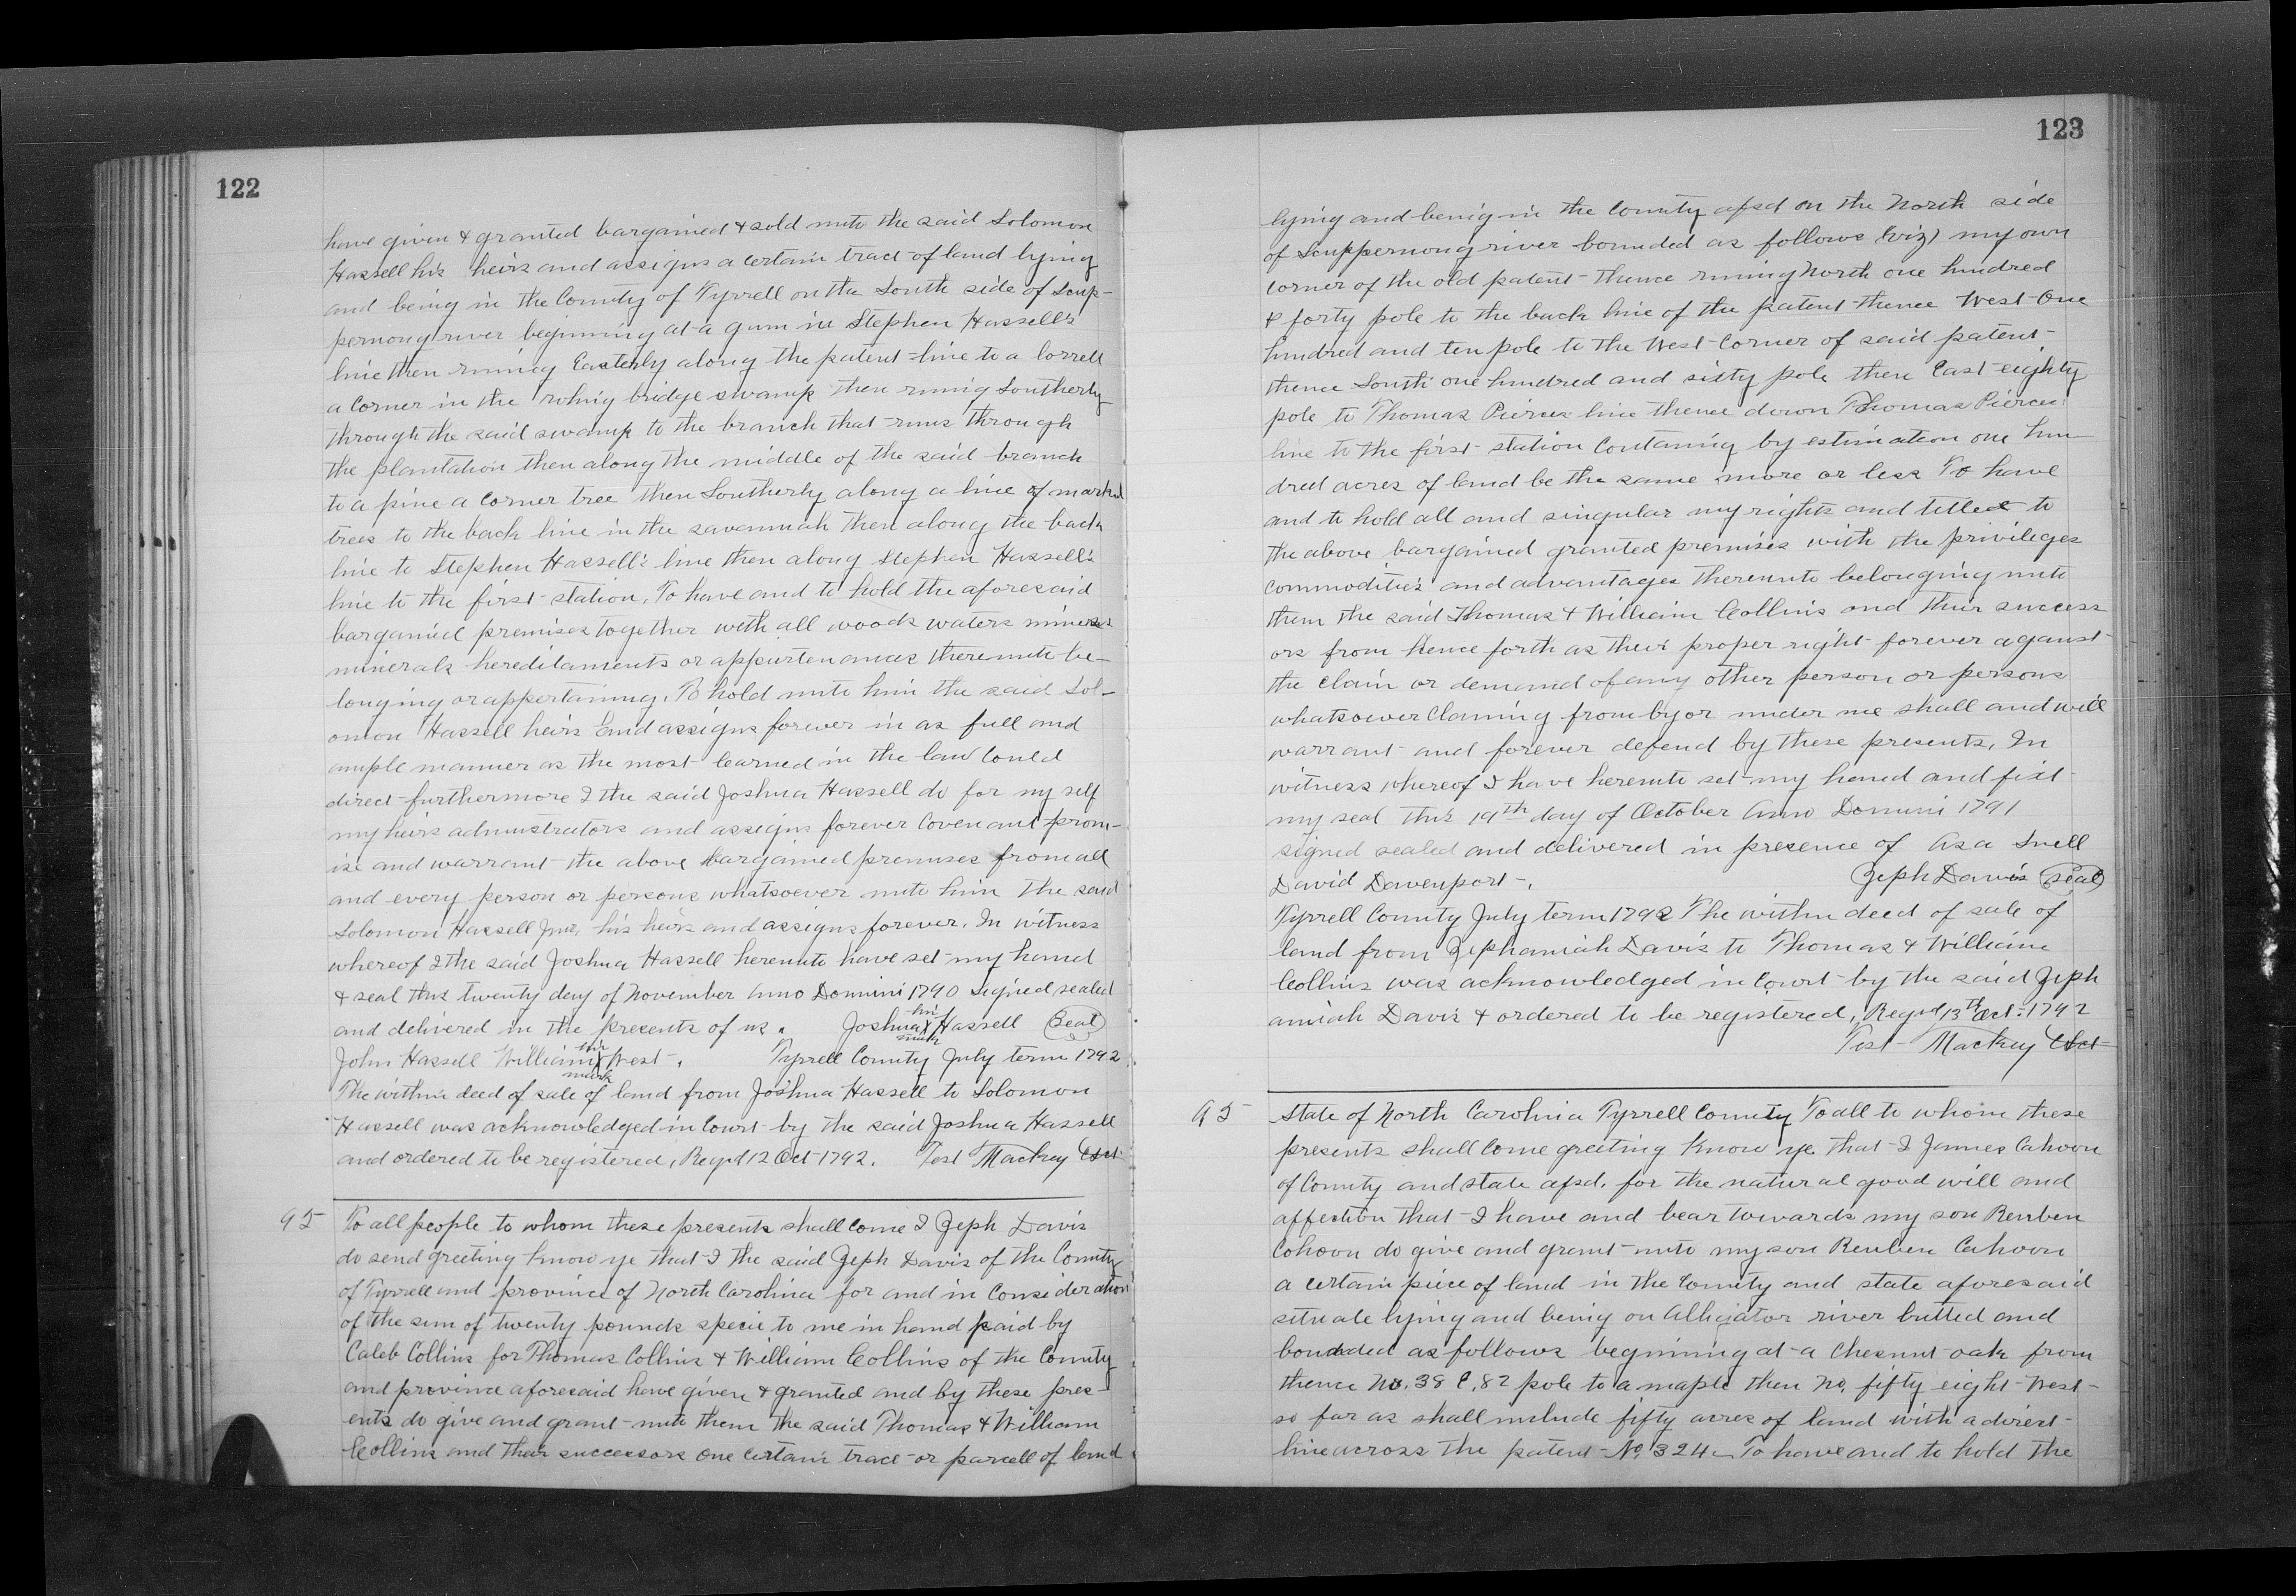 122
have given & granted bargained & sold unto the said Solomon
Hassell his heirs and assigns a certain tract of land lying
and being in the County of Tyrrell on the South side of Scup-
pernong river beginning at a gum in Stephen Hassell's
line then runing Easterly along the patent line to a lorrell
a Corner in the roling bridge swamp then runing Southerly
through the said swamp to the branch that runs through
the plantation then along the middle of the said branch
to a pine a Corner tree then Southerly along a line of marked
trees to the back line in the savannah then along the back
line to Stephen Hassell's line then along Stephen Hassell's
line to the first station, To have and to hold the aforesaid
bargained premises together with all woods waters mines
minerals hereditaments or appurtenances thereunto be-
longing or appertaining. To hold unto him the said Sol-
omon Hassell heirs and assigns forever in as full and
ample manner as the most learned in the law Could
direct furthermore I the said Joshua Hassell do for my self
my heirs admnistrators and assigns forever Covenant prom-
ise and warrant the above bargained premises from all
and every person or persons whatsoever unto him the said
Solomon Hassell Jnr, his heirs and assigns forever. In witness
whereof I the said Joshua Hassell hereunto have set my hand
& seal this twenty day of November Anno Domini 1790 signed sealed
and delivered in the presents of us. Joshua his X mark Hassell (Seal)
John Hassell William his X mark West. Tyrrell County July term 1792
The within deed of sale of land from Joshua Hassell to Solomon
Hassell was acknowledged in Court by the said Joshua Hassell
and ordered to be registered, Regd 12 Oct 1792. Test Mackey
95 To all people to whom these presents shall Come I Zeph Davis
do send greeting Know ye that I the said Zeph Davis of the County
of Tyrrell and province of North Carolina for and in Consideration
of the sum of twenty pounds specie to me in hand paid by
Caleb Collins for Thomas Collins & William Collins of the County
and province aforesaid have given & granted and by these pres-
ents do give and grant unto them the said Thomas & William
Collins and their successors one certain tract or parcell of land
123
lying and being in the County afsd on the North side
of Scuppernong river bounded as follows (viz) my own
corner of the old patent thence runing North one hundred
& forty pole to the back line of the patent thence West One
hundred and ten pole to the West Corner of said patent
thence South one hundred and sixty pole then East eighty
pole to Thomas Pierces line thence down Thomas Pierces
line to the first station Containing by estimation one hun-
dred acres of land be the same more or less To have
and to hold all and singular my rights and titles to
the above bargained granted premises with the privileges
commodities and advantages thereunto belonging unto
them the said Thomas & William Collins and their success
ors from hence forth as their proper right forever against
the claim or demand of any other person or persons
whatsoever Claming from by or under me shall and will
warrant and forever defend by these presents, In
witness whereof I have hereunto set my hand and fixt
my seal this 19th day of October Anno Domini 1791
signed sealed and delivered in presence of Asa Snell
David Davenport. Zeph Davis (Seal)
Tyrrell County July term 1792 The within deed of sale of
land from Zephaniah Davis to Thomas & William
Collins was acknowledged in Court by the said Zeph
aniah Davis & ordered to be registered, Regd 13th Oct. 1792
Test Mackey
95 State of North Carolina Tyrrell County To all to whom these
presents shall Come greeting Know ye that I James Cahoon
of County and state afsd. for the natural good will and
affection that I have and bear towards my son Reuben
Cohoon do give and grant unto my son Reuben Cahoon
a certain piece of land in the County and state aforesaid
situate lying and being on Alligator river butted and
bounded as follows beginning at a Chesnut oak from
thence No. 38 E. 82 pole to a maple then No. fifty eight West
so far as shall include fifty acres of land with a direct
line across the patent No 324 To have and to hold the